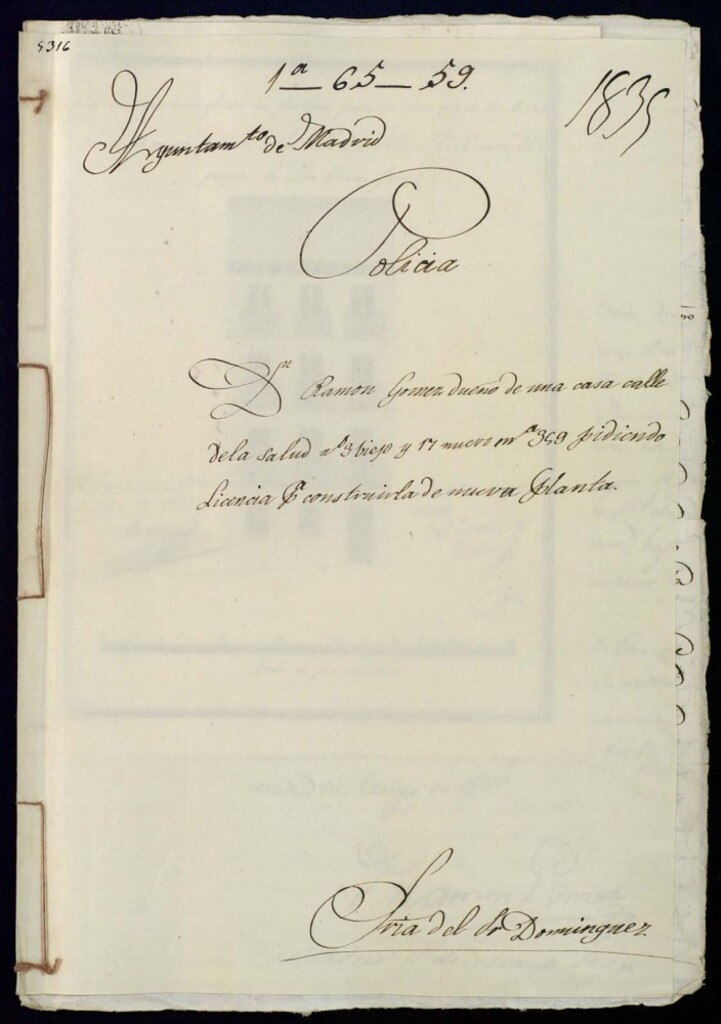 5316
1ª — 65 — 59.
1835
Ayuntamto de Madrid
Policia
Dn Ramon Gomez dueño de una casa calle
dela Salud nº 3 biejo y 17 nuevo mª 359 pidiendo
Licencia Pª construirla de nueva Planta.
Sria del Sr Dominguez